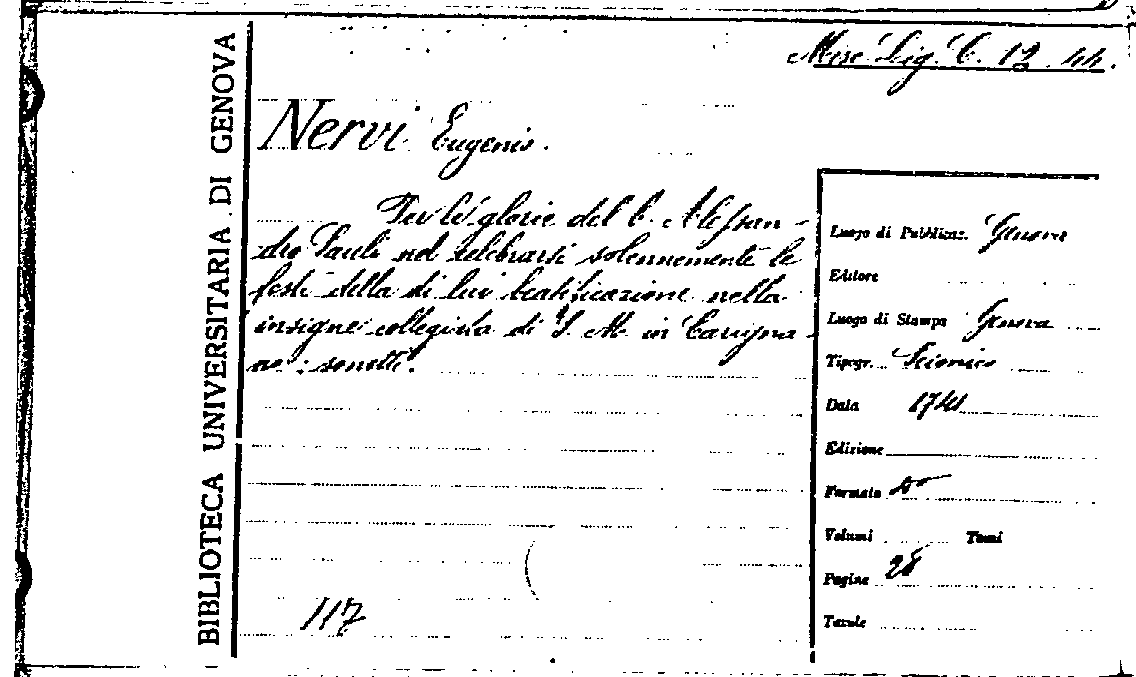 BIBLIOTECA UNIVERSITARIA DI GENOVA
Misc. Lig. C. 12. 44.
Nervi Eugenio.
Per le glorie del b. Alessan-
dro Sauli nel celebrarsi solennemente le
feste della di lui beatificazione nella
insigne collegiata di S. M. in Carigna-
no: sonetti.
117
Luogo di Pubblicaz. Genova
Editore
Luogo di Stampa Genova
Tipogr. Scionico
Data 1741
Edizione
Formato
Volumi Tomi
Pagine 28
Tavole